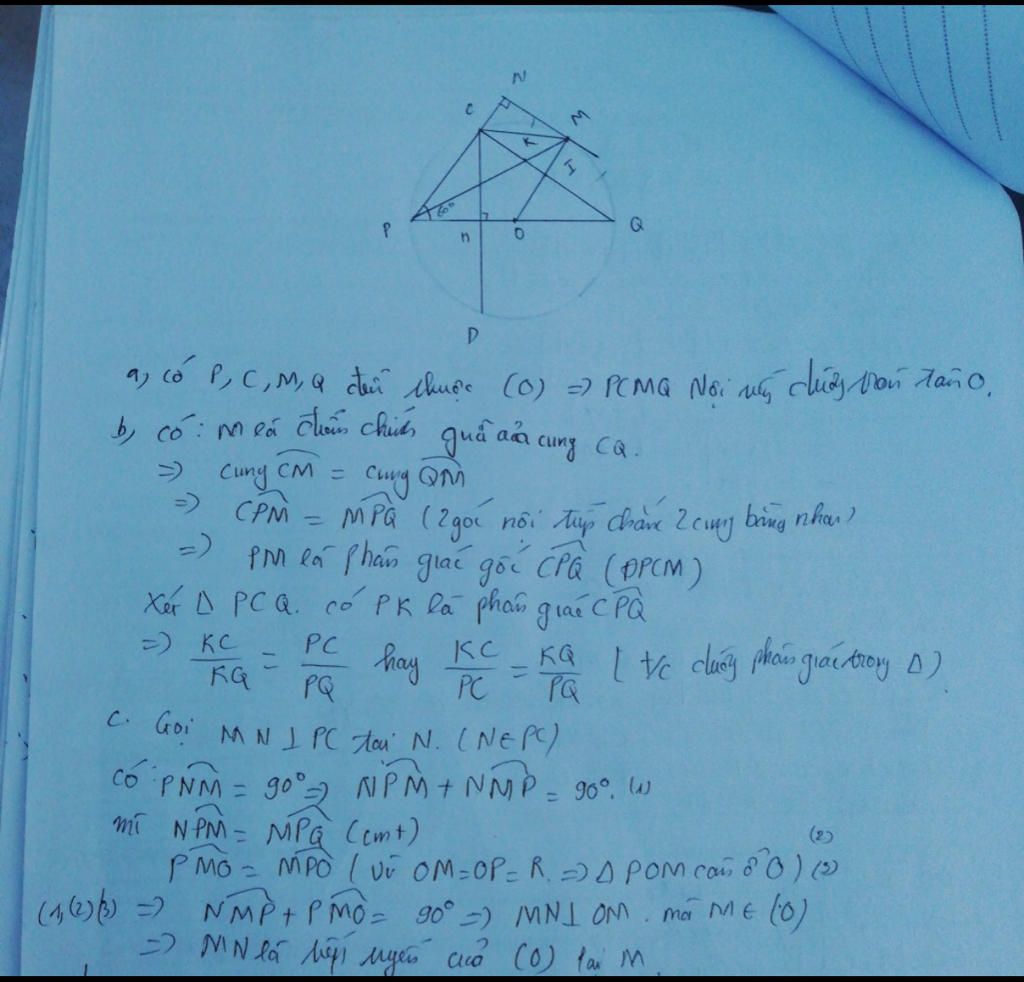 N
C
M
K
I
60°
P
H
O
Q
D
a, có P, C, M, Q đều thuộc (O) => PCMQ Nội tiếp đường tròn tâm O.
b, có: M là điểm chính giữa của cung CQ.
=> cung CM = cung QM
=> CPM = MPQ (2 góc nội tiếp chắn 2 cung bằng nhau)
=> PM là phân giác góc CPQ (ĐPCM)
Xét Δ PCQ. có PK là phân giác CPQ
=> KC/KQ = PC/PQ hay KC/PC = KQ/PQ ( t/c đường phân giác trong Δ)
c. Gọi MN ⊥ PC tại N. (N∈PC)
Có: PNM = 90° => NPM + NMP = 90°. (1)
mà NPM = MPQ (cmt) (2)
PMO = MPO ( Vì OM=OP=R. => Δ POM cân ở O) (3)
(1)(2)(3) => NMP + PMO = 90° => MN ⊥ OM. mà M ∈ (O)
=> MN là tiếp tuyến của (O) tại M.